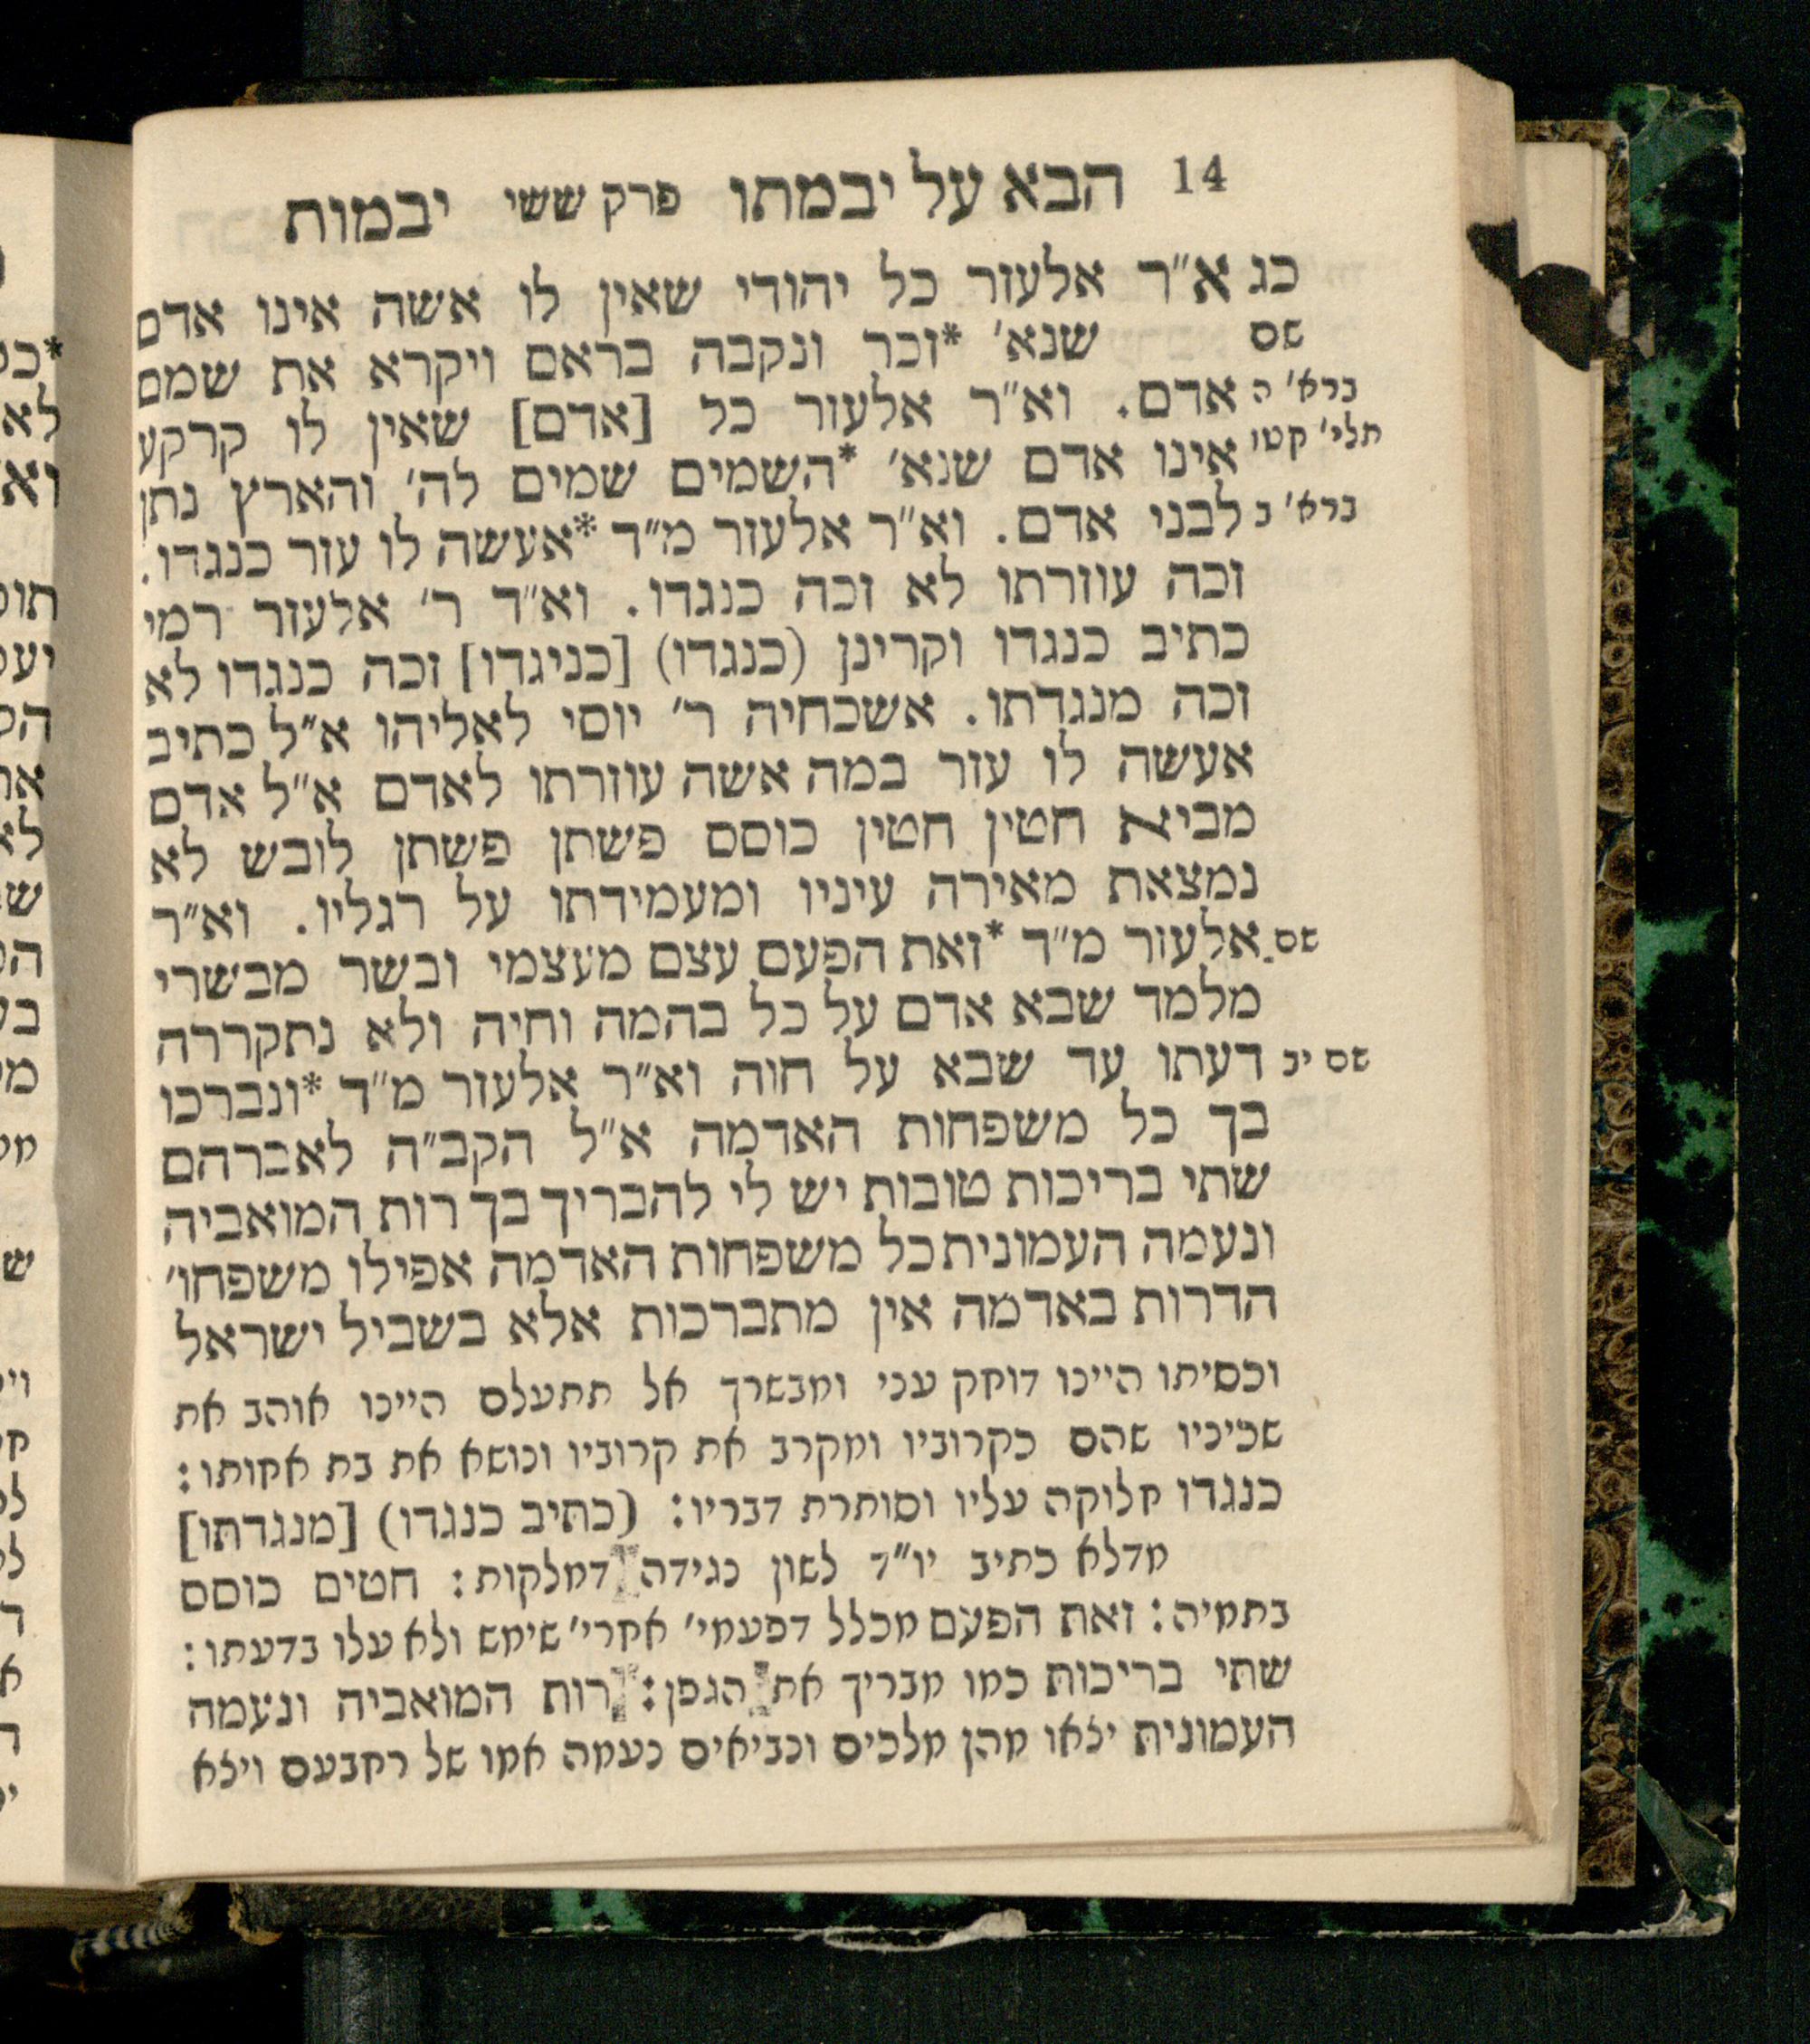 14 הבא על יבמתו פרק ששי יבמות
כג א״ר אלעזר כל יהודי שאין לו אשה אינו אדם
שם שנא׳ *זכר ונקבה בראם ויקרא את שמם
ברא׳ ה אדם. וא״ר אלעזר כל [אדם] שאין לו קרקע
תלי׳ קטו אינו אדם שנא׳ *השמים שמים לה׳ והארץ נתן
ברא׳ ב לבני אדם. וא״ר אלעזר מ״ד *אעשה לו עזר כנגדו.
זכה עוזרתו לא זכה כנגדו. וא״ד ר׳ אלעזר רמי
כתיב כנגדו וקרינן (כנגדו) [כניגדו] זכה כנגדו לא
זכה מנגדתו. אשכחיה ר׳ יוסי לאליהו א״ל כתיב
אעשה לו עזר במה אשה עוזרתו לאדם א״ל אדם
מביא חטין חטין כוסם פשתן פשתן לובש לא
נמצאת מאירה עיניו ומעמידתו על רגליו. וא״ר
שם אלעזר מ״ד *זאת הפעם עצם מעצמי ובשר מבשרי
מלמד שבא אדם על כל בהמה וחיה ולא נתקררה
שם יב דעתו עד שבא על חוה וא״ר אלעזר מ״ד *ונברכו
בך כל משפחות האדמה א״ל הקב״ה לאברהם
שתי בריכות טובות יש לי להבריך בך רות המואביה
ונעמה העמונית כל משפחות האדמה אפילו משפחו׳
הדרות באדמה אין מתברכות אלא בשביל ישראל
וכסיתו היינו דוחק עני ומבשרך אל תתעלם היינו אוהב את
שכיניו שהם כקרוביו ומקרב את קרוביו ונושא את בת אחותו:
כנגדו חלוקה עליו וסותרת דבריו: (כתיב כנגדו) [מנגדתו]
מדלא כתיב יו״ד לשון נגידה דמלקות: חטים כוסם
בתמיה: זאת הפעם מכלל דפעמי׳ אחרי׳ שימש ולא עלו בדעתו:
שתי בריכות כמו מבריך את הגפן: רות המואביה ונעמה
העמונית יצאו מהן מלכים ונביאים נעמה אמו של רחבעם ויצא